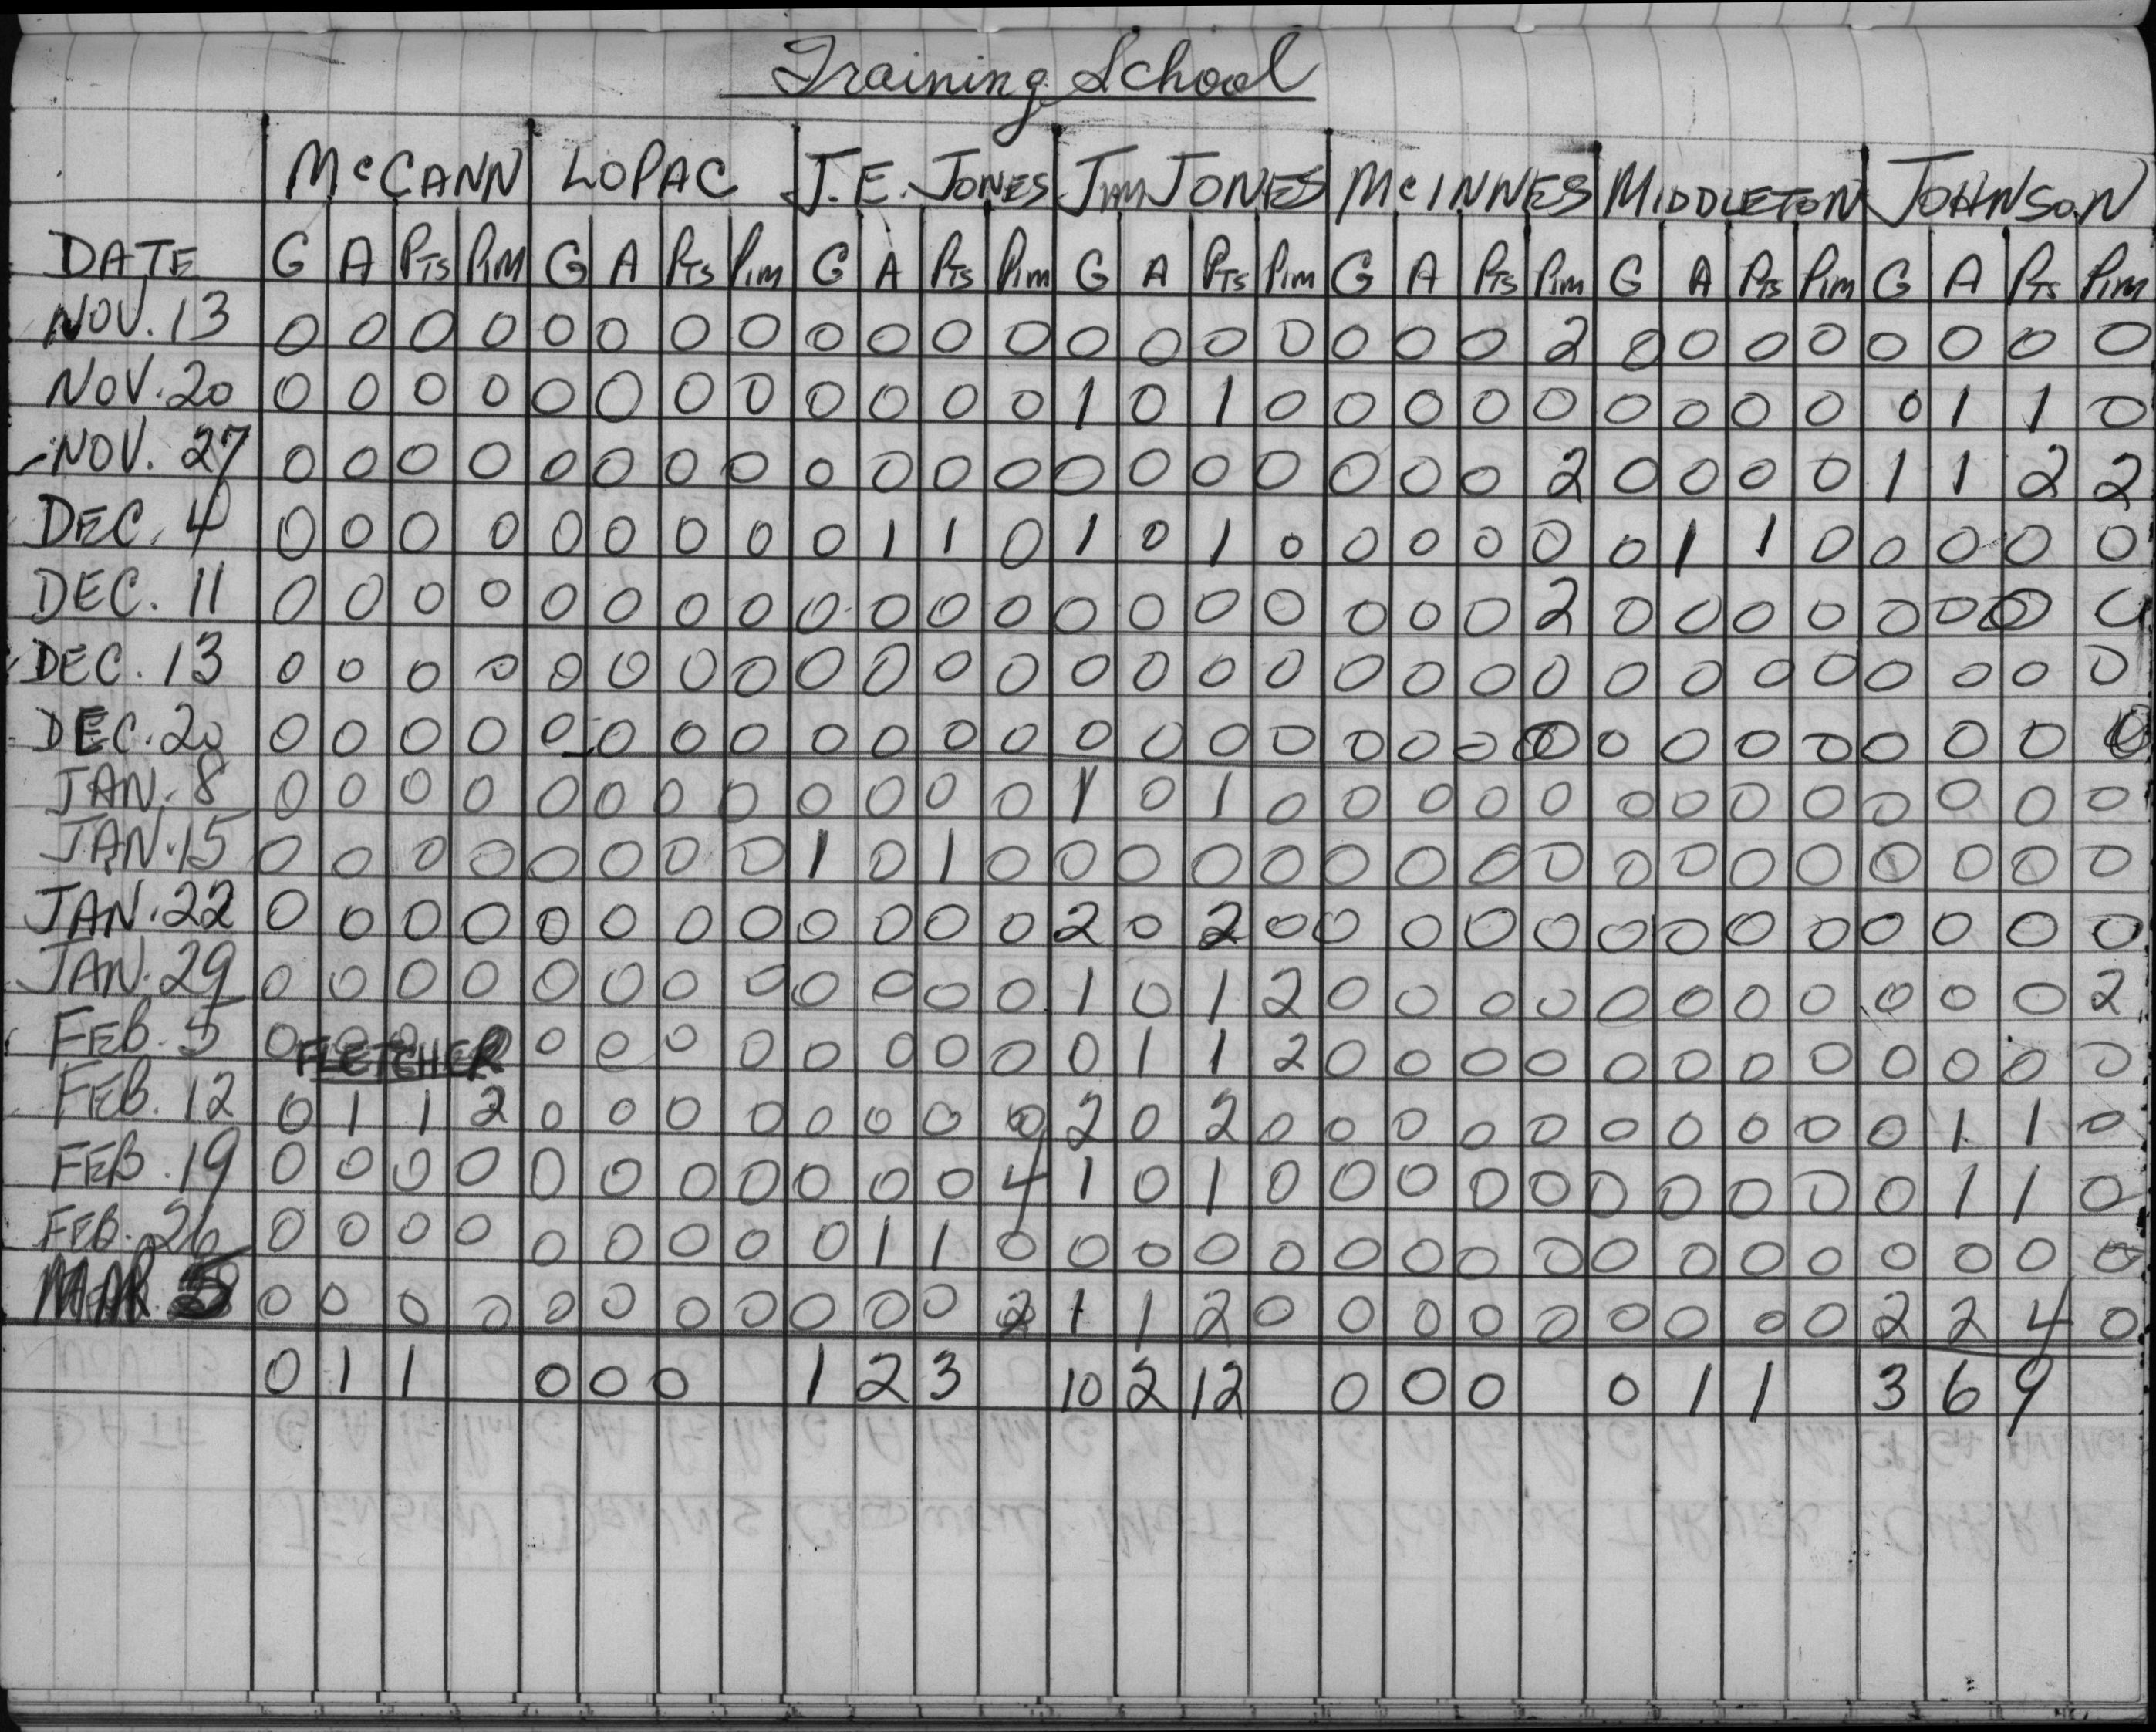 Training School
McCANN LOPAC J.E. JONES JIM JONES McINNES MIDDLETON JOHNSON
DATE G A PTS PIM G A PTS PIM G A PTS PIM G A PTS PIM G A PTS PIM G A PTS PIM G A PTS PIM
NOV. 13 0 0 0 0 0 0 0 0 0 0 0 0 0 0 0 0 0 0 0 2 0 0 0 0 0 0 0 0
NOV. 20 0 0 0 0 0 0 0 0 0 0 0 0 1 0 1 0 0 0 0 0 0 0 0 0 0 1 1 0
NOV. 27 0 0 0 0 0 0 0 0 0 0 0 0 0 0 0 0 0 0 0 2 0 0 0 0 1 1 2 2
DEC. 4 0 0 0 0 0 0 0 0 0 1 1 0 1 0 1 0 0 0 0 0 0 1 1 0 0 0 0 0
DEC. 11 0 0 0 0 0 0 0 0 0 0 0 0 0 0 0 0 0 0 0 2 0 0 0 0 0 0 0 0
DEC. 13 0 0 0 0 0 0 0 0 0 0 0 0 0 0 0 0 0 0 0 0 0 0 0 0 0 0 0 0
DEC. 20 0 0 0 0 0 0 0 0 0 0 0 0 0 0 0 0 0 0 0 0 0 0 0 0 0 0 0 0
JAN. 8 0 0 0 0 0 0 0 0 0 0 0 0 1 0 1 0 0 0 0 0 0 0 0 0 0 0 0 0
JAN. 15 0 0 0 0 0 0 0 0 1 0 1 0 0 0 0 0 0 0 0 0 0 0 0 0 0 0 0 0
JAN. 22 0 0 0 0 0 0 0 0 0 0 0 0 2 0 2 0 0 0 0 0 0 0 0 0 0 0 0 0
JAN. 29 0 0 0 0 0 0 0 0 0 0 0 0 1 0 1 2 0 0 0 0 0 0 0 0 0 0 0 2
FEB. 5 0 0 0 0 0 0 0 0 0 0 0 0 0 1 1 2 0 0 0 0 0 0 0 0 0 0 0 0
FLETCHER
FEB. 12 0 1 1 2 0 0 0 0 0 0 0 0 2 0 2 0 0 0 0 0 0 0 0 0 0 1 1 0
FEB. 19 0 0 0 0 0 0 0 0 0 0 0 4 1 0 1 0 0 0 0 0 0 0 0 0 0 1 1 0
FEB. 26 0 0 0 0 0 0 0 0 0 1 1 0 0 0 0 0 0 0 0 0 0 0 0 0 0 0 0 0
MAR. 5 0 0 0 0 0 0 0 0 0 0 0 2 1 1 2 0 0 0 0 0 0 0 0 0 2 2 4 0
0 1 1 0 0 0 1 2 3 10 2 12 0 0 0 0 1 1 3 6 9